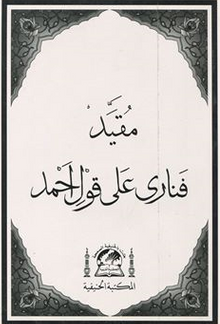 مقيد
فناری علی قول احمد
المكتبة الحنيفية